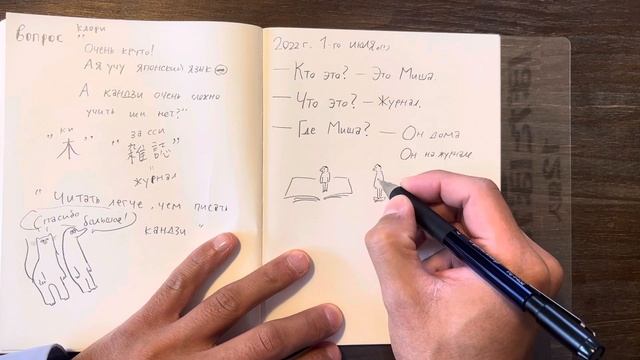 Вопрос
Клари
"Очень круто!
А я учу японский язык
А кандзи очень сложно
учить или нет?"
ки
за сси
"木" "雑誌"
журнал
"Читать легче, чем писать
кандзи"
Спасибо большое!
2022г. 1-го июля
— Кто это? — Это Миша.
— Что это? — Журнал.
— Где Миша? — Он дома
Он на журнале